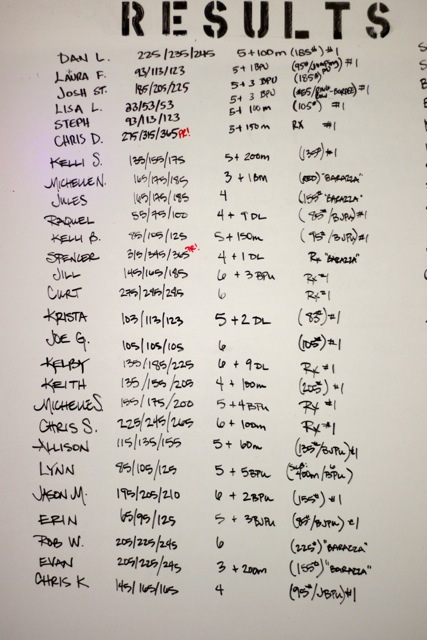 RESULTS
DAN L. 225/235/245 5+100m (185#) #1
LAURA F. 93/113/123 5+1 BPU #1
JOSH ST. 185/205/225 5+3 BPU (185#)
LISA L. 23/53/53 5+3 BPU #1
STEPH 93/113/123 5+100m (105#) #1
CHRIS D. 275/315/365 PR! 5+150m RX #1
KELLI S. 135/155/175 5+200m (135#) #1
MICHELLE N. 165/175/185 3+1BM (RED) "BARAZZA"
JULES 165/175/185 4 (155# "BARAZZA"
RAQUEL 55/75/100 4+9 DL (85#/BJPU) #1
KELLI B. 85/105/125 5+150m (95#/BJPU) #1
SPENCER 315/345/365 PR! 4+1 DL Rx "BARAZZA"
JILL 145/165/185 6+3 BPU Rx #1
CURT 275/285/285 6 Rx #1
KRISTA 103/113/123 5+2 DL (83#) #1
JOE G. 105/105/105 6 (105#) #1
KELBY 135/185/225 6+9DL Rx #1
KEITH 135/155/205 4+100m (205#) #1
MICHELLE S 155/175/200 5+4BPU Rx #1
CHRIS S. 225/245/265 6+100m Rx #1
ALLISON 115/135/155 5+60m (135#/BJPU) #1
LYNN 85/105/125 5+5BPU (SUB 400m/BPU)
JASON M. 195/205/210 6+2BPU (155#) #1
ERIN 65/95/125 5+3BJPU (83#/BJPU) #1
ROB W. 205/225/245 6 (225#) "BARAZZA"
EVAN 205/225/245 3+200m (155#) "BARAZZA"
CHRIS K 145/165/165 4 (95#/JBPU) #1